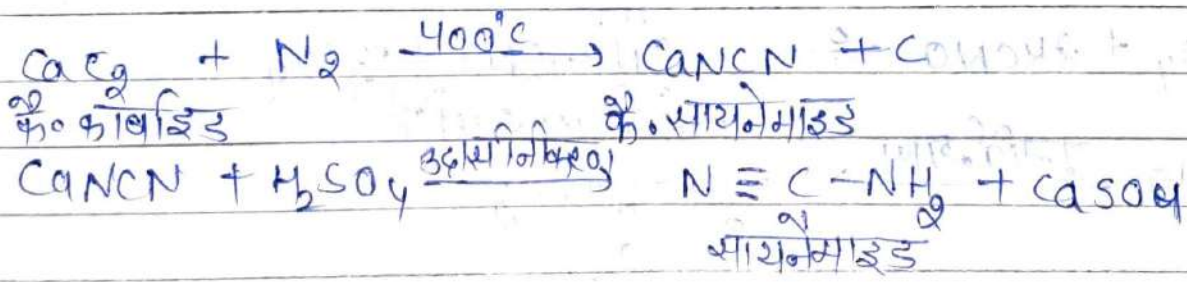 CaC₂ + N₂ 400°C → CaNCN + C
कै० कार्बाइड कै. सायनेमाइड
CaNCN + H₂SO₄ उदासीनिकरण → N ≡ C – NH₂ + CaSO₄
सायनैमाइड